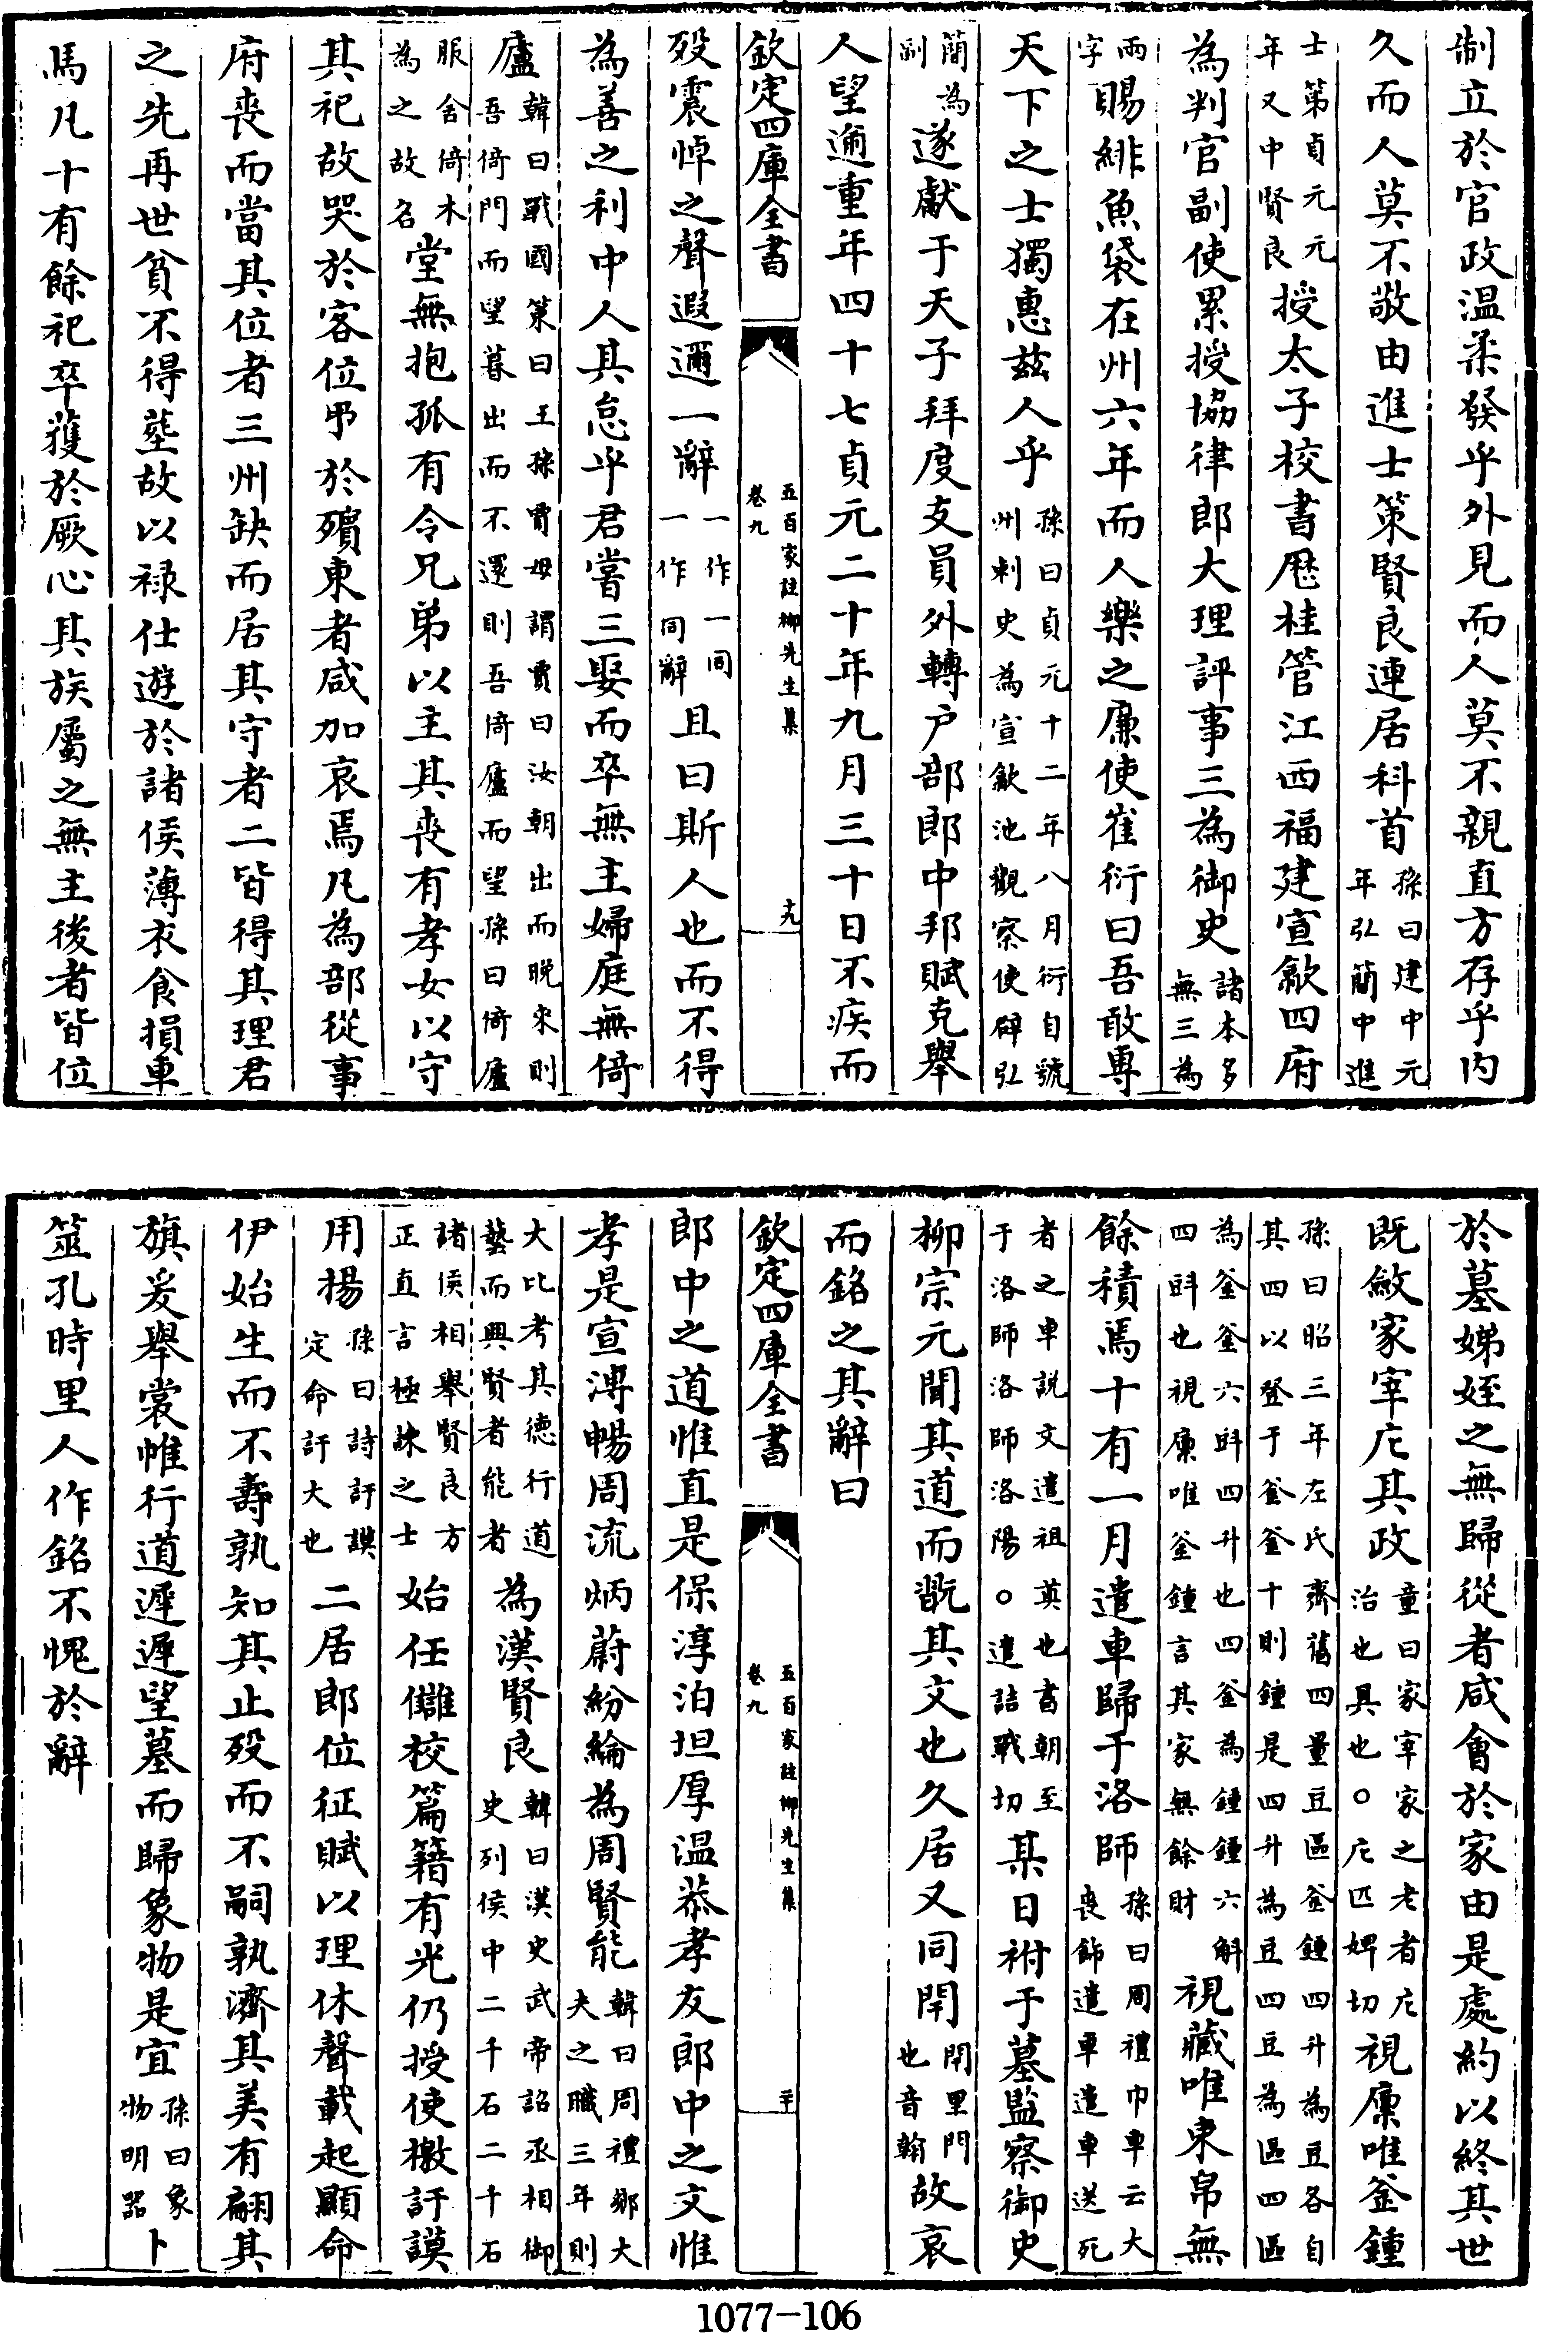 制立於官政温柔發乎外見而人莫不親直方存乎内
久而人莫不敬由進士策賢良連居科首孫曰建中元年弘簡中進
士第貞元元年又中賢良授太子校書歷桂管江西福建宣歙四府
為判官副使累授協律郎大理評事三為御史諸本多無三為
兩字賜緋魚袋在州六年而人樂之廉使崔衍曰吾敢專
天下之士獨惠兹人乎孫曰貞元十二年八月衍自虢州刺史為宣歙池觀察使辟弘
簡為副遂獻于天子拜度支員外轉户部郎中邦賦克舉
人望逾重年四十七貞元二十年九月三十日不疾而
欽定四庫全書
五百家註柳先生集
卷九
十九
殁震悼之聲遐邇一辭一作一同一作同辭且曰斯人也而不得
為善之利中人其怠乎君嘗三娶而卒無主婦庭無倚
廬韓曰戰國策曰王孫賈母謂賈曰汝朝出而晚來則吾倚門而望暮出而不還則吾倚廬而望孫曰倚廬
服舍倚木為之故名堂無抱孤有令兄弟以主其喪有孝女以守
其祀故哭於客位弔於殯東者咸加哀焉凡為部從事
府喪而當其位者三州缺而居其守者二皆得其理君
之先再世貧不得塟故以禄仕遊於諸侯薄衣食損車
馬凡十有餘祀卒蒦於厥心其族屬之無主後者皆位
於墓娣姪之無歸從者咸會於家由是處約以終其世
既斂家宰庀其政童曰家宰家之老者庀治也具也○庀匹婢切視廩唯釜鍾
孫曰昭三年左氏齊舊四量豆區釜鍾四升為豆各自其四以登于釜釜十則鍾是四升為豆四豆為區四區
為釜釜六㪷四升也四釜為鍾鍾六斛四㪷也視廩唯釜鍾言其家無餘財視藏唯束帛無
餘積焉十有一月遣車歸于洛師孫曰周禮巾車云大喪飾遣車遣車送死
者之車説文遣祖奠也書朝至于洛師洛師洛陽○遣詰戰切某日祔于墓監察御史
柳宗元聞其道而翫其文也久居又同閈閈里門也音翰故哀
而銘之其辭曰
欽定四庫全書
五百家註柳先生集
卷九
二十
郎中之道惟直是保淳泊坦厚温恭孝友郎中之文惟
孝是宣溥暢周流炳蔚紛綸為周賢能韓曰周禮鄉大夫之職三年則
大比考其德行道藝而興賢者能者為漢賢良韓曰漢史武帝詔丞相御史列侯中二千石二千石
諸侯相舉賢良方正直言極諫之士始任讎校篇籍有光仍授使檄訏謨
用揚孫曰詩訏謨定命訏大也二居郎位征賦以理休聲載起顯命
伊始生而不壽孰知其止殁而不嗣孰濟其美有翩其
旗爰舉裳帷行道遲遲望墓而歸象物是宜孫曰象物明器卜
筮孔時里人作銘不愧於辭
1077-106